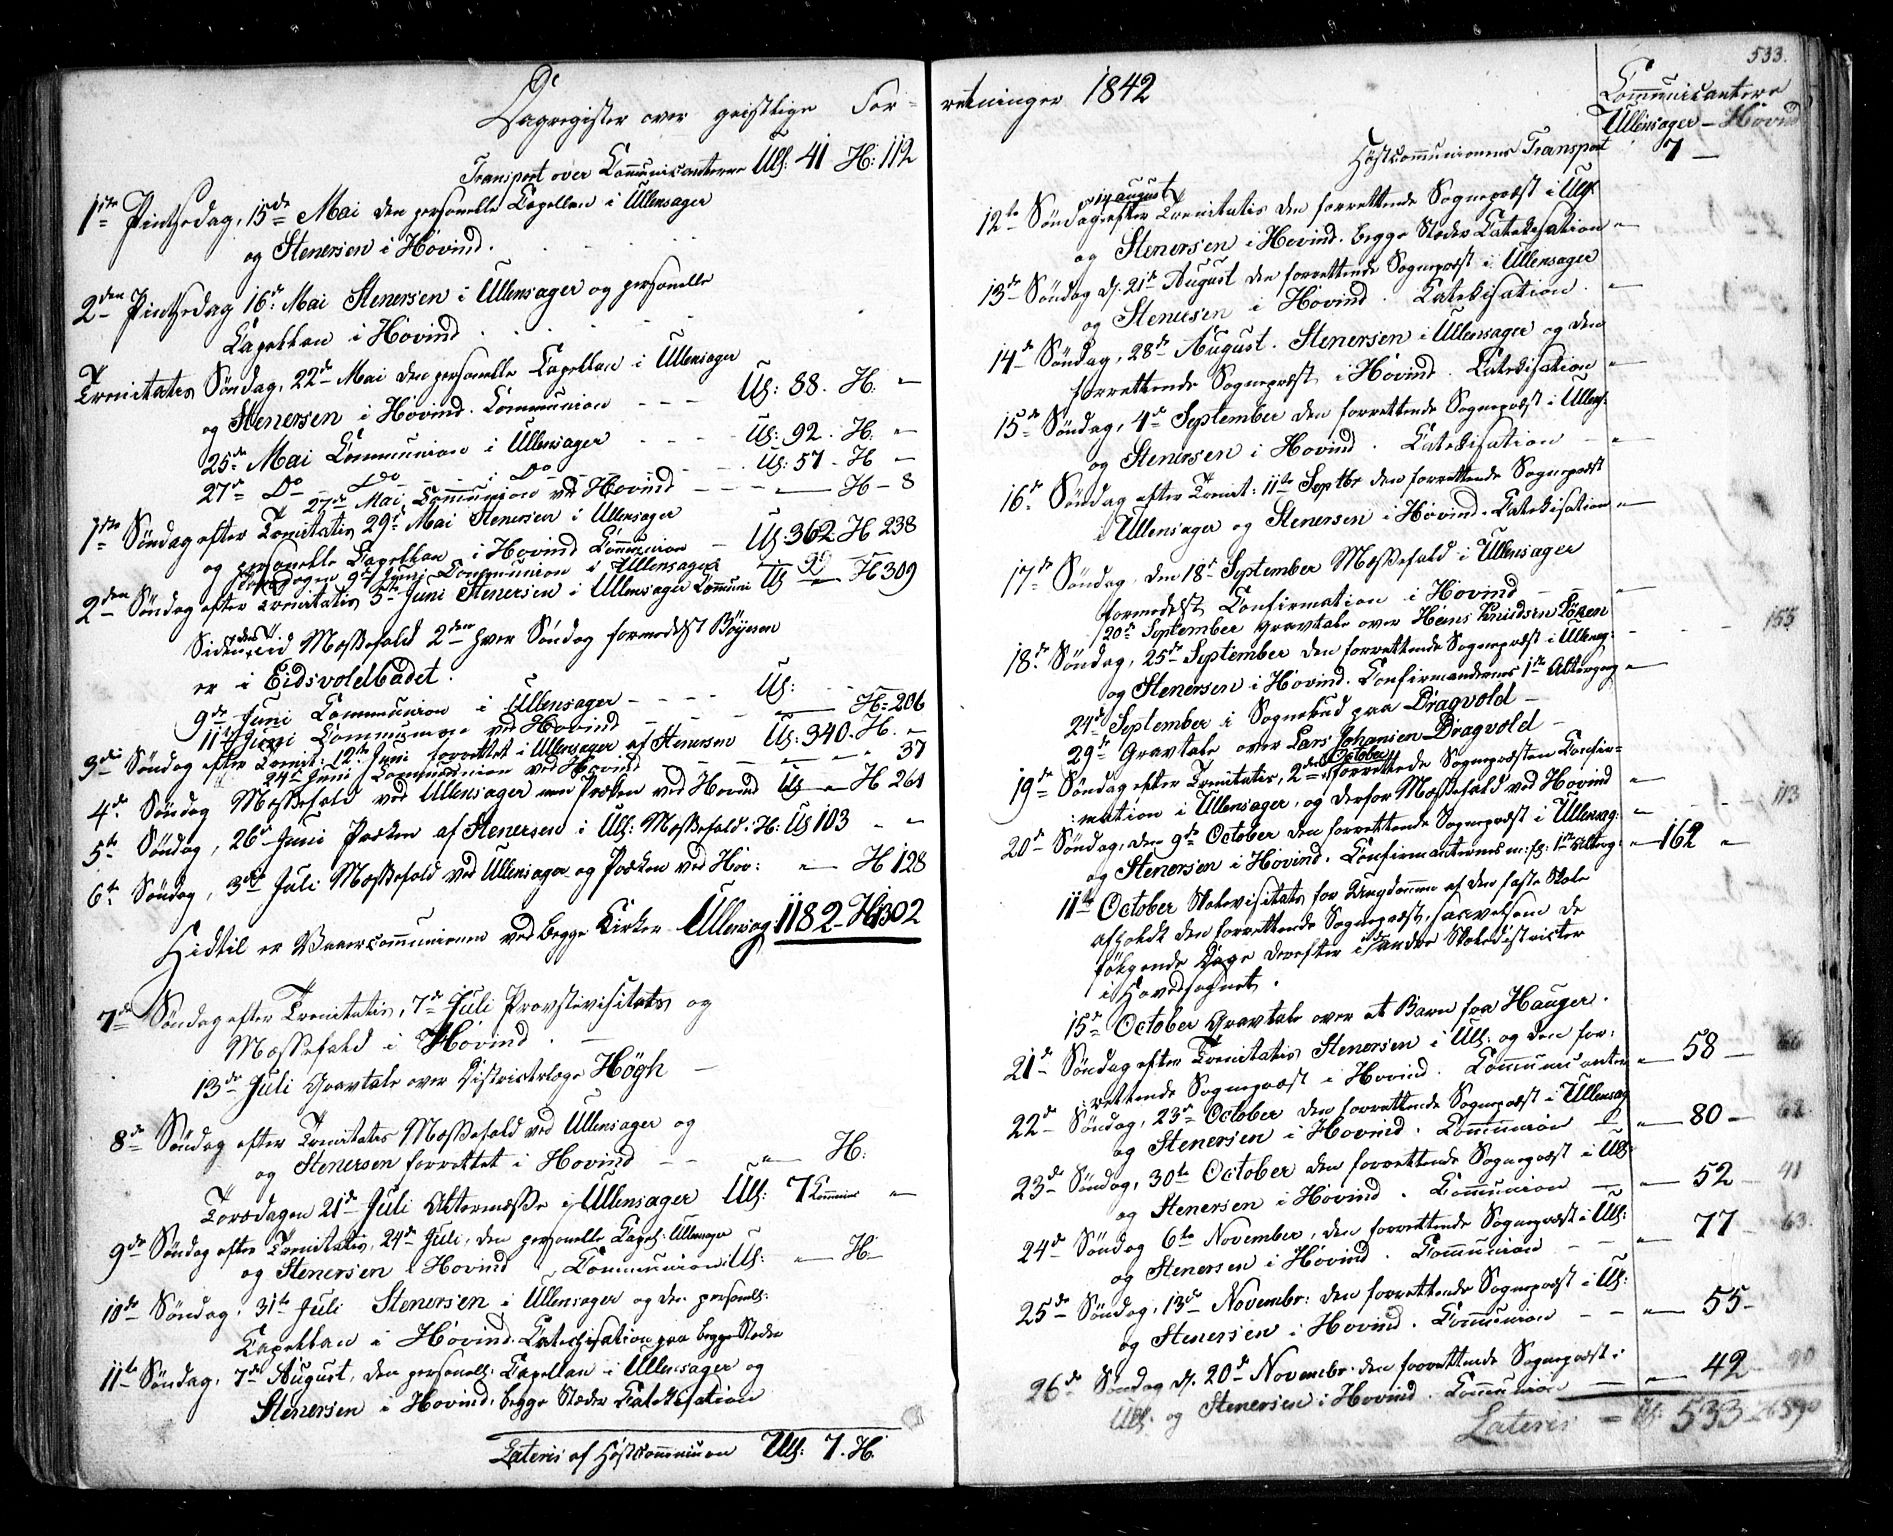 Dagregister over geistlige For-
Transport over Communicanterne Ull: 41 H: 112
1ste Pintsedag, 15de Mai den personelle Capellan i Ullensager
og Stenersen i Hovind.
2den Pintsedag 16de Mai Stenersen i Ullensager og personelle
Capellan i Hovind
Trinitatis Søndag, 22de Mai den personelle Capellan i Ullensager
og Stenersen i Hovind. Communion - - - Ull: 88. H. "
25de Mai Communion i Ullensager - - - - Ull: 92. H. "
27de Do Do - - i Do - - - Ull: 57 - H "
27de Mai Communion ved Hovind - - - H - 8
1ste Søndag efter Trinitatis 29de Mai Stenersen i Ullensager
og personelle Capellan i Hovind Communion - Ull: 362 H 238
Torsdagen 9de Juni Communion i Ullensager 99
2den Søndag efter Trinitatis 5te Juni Stenersen i Ullensager Communi Ull " H 309
Siden den Tid Messefald 2den hver Søndag formedelst Bøyesen
er i Eidsvoldbadet.
9de Juni Communion i Ullensager - - - - Ull:
11te Juni Communion ved Hovind - - - H= 206
3die Søndag efter Trinit: 12te Juni forrettet i Ullensager af Stenersen Ull: 340. H. "
24de Juni Communion ved Hovind - - - " 37
4de Søndag Messefald ved Ullensager men Præken ved Hovind Ull " H 264
5te Søndag, 26de Juni Præken af Stenersen i Ull: Messefald i H: Ull 103 - "
6te Søndag, 3die Juli Messefald ved Ullensager og Præken ved Hov: " H 128
Hidtil er Vaarcommunionen ved begge Kirker Ullensag: 1182 - H 1302
7de Søndag efter Trinitatis, 7de Juli Provstevisitats og
Messefald i Hovind. -
13de Juli Gravtale over Districtslæge Høgh -
8de Søndag efter Trinitatis Messefald ved Ullensager og
og Stenersen forrettet i Hovind - - " H:
Torsdagen 21de Juli Aftermesse i Ullensager Ull: 7 Commun "
9de Søndag efter Trinitatis, 24de Juli, den personelle Capel: Ullensager
og Stenersen i Hovind, Communion Ull: " H.
10de Søndag, 31te Juli Stenersen i Ullensager og den personell:
Capellan i Hovind. Catechisation paa begge Steder
11te Søndag, 7de August, den personell: Capellan i Ullensager og
Stenersen i Hovind, begge Steder Catekisation
Lateris af Høstcommunion Ull: 7. H.
533.
retninger 1842
Communicantere
Ullensager - Hovind
Høstcommunionens Transport 7 -
14 august
12te Søndag efter Trinitatis den forrettende Sognepræst i Ull:
og Stenersen i Hovind. begge Steder Catekisation "
13de Søndag d. 21de August den forrettende Sognepræst i Ullensager
og Stenersen i Hovind. Catekisation. "
14de Søndag, 28de August. Stenersen i Ullensager og den
forrettende Sognepræst i Hovind. Catekisation "
15de Søndag, 4de September den forrettende Sognepræst i Ullens:
og Stenersen i Hovind. Catekisation - "
16de Søndag efter Trinit: 11te Septbr den forrettende Sognepræst
i Ullensager og Stenersen i Hovind. Catekisation "
17de Søndag, den 18de September Messefald i Ullensager
formedelst Confirmation i Hovind -
20de September Gravtale over Hans Knudsen
18de Søndag, 25de September den forrettende Sognepræst i Ullensag: - - 155
og Stenersen i Hovind. Confirmandernes 1ste Altergang "
24de September i Sognebud paa Dragvold -
29de Gravtale over Lars Johansen Dragvold -
October
19de Søndag efter Trinitatis, 2den forrettede Sognepræsten Confir=
:mation i Ullensager, og derfor Messefald ved Hovind "
20de Søndag, den 9de October den forrettende Sognepræst i Ullensag: " - 113
og Stenersen i Hovind. Confirmanternes m: fl: 1ste Alterg: " 162 "
11te October Skolevisitats for Ungdommen af den faste Skole
afholdt den forrettende Sognepræst, saavelsom de
følgende Dage derefter i de andre Skoledistricter
i Hovedsognet.
15de October Gravtale over et Barn fra Hauger.
21de Søndag efter Trinitatis Stenersen i Ull: og den for:
:rettende Sognepræst i Hovind. Communicanter " 58 - 66
22de Søndag, 23de October den forrettende Sognepræst i Ullensag
og Stenersen i Hovind. Communion - " 80 - 62
23de Søndag, 30te October den forrettende Sognepræst i Ull:
og Stenersen i Hovind. Communion - " 52 - 41
24de Søndag 6te November, den forrettende Sognepræst i Ull:
og Stenersen i Hovind. Communion - - " 77 - 63
25de Søndag, 13de Novembr: den forrettende Sognepræst i Ull:
og Stenersen i Hovind. Communion - - " 55 -
26de Søndag d. 20de Novembr: den forrettende Sognepræst i
Ull. og Stenersen i Hovind. Communion - " 42
Lateris - Ull: 533